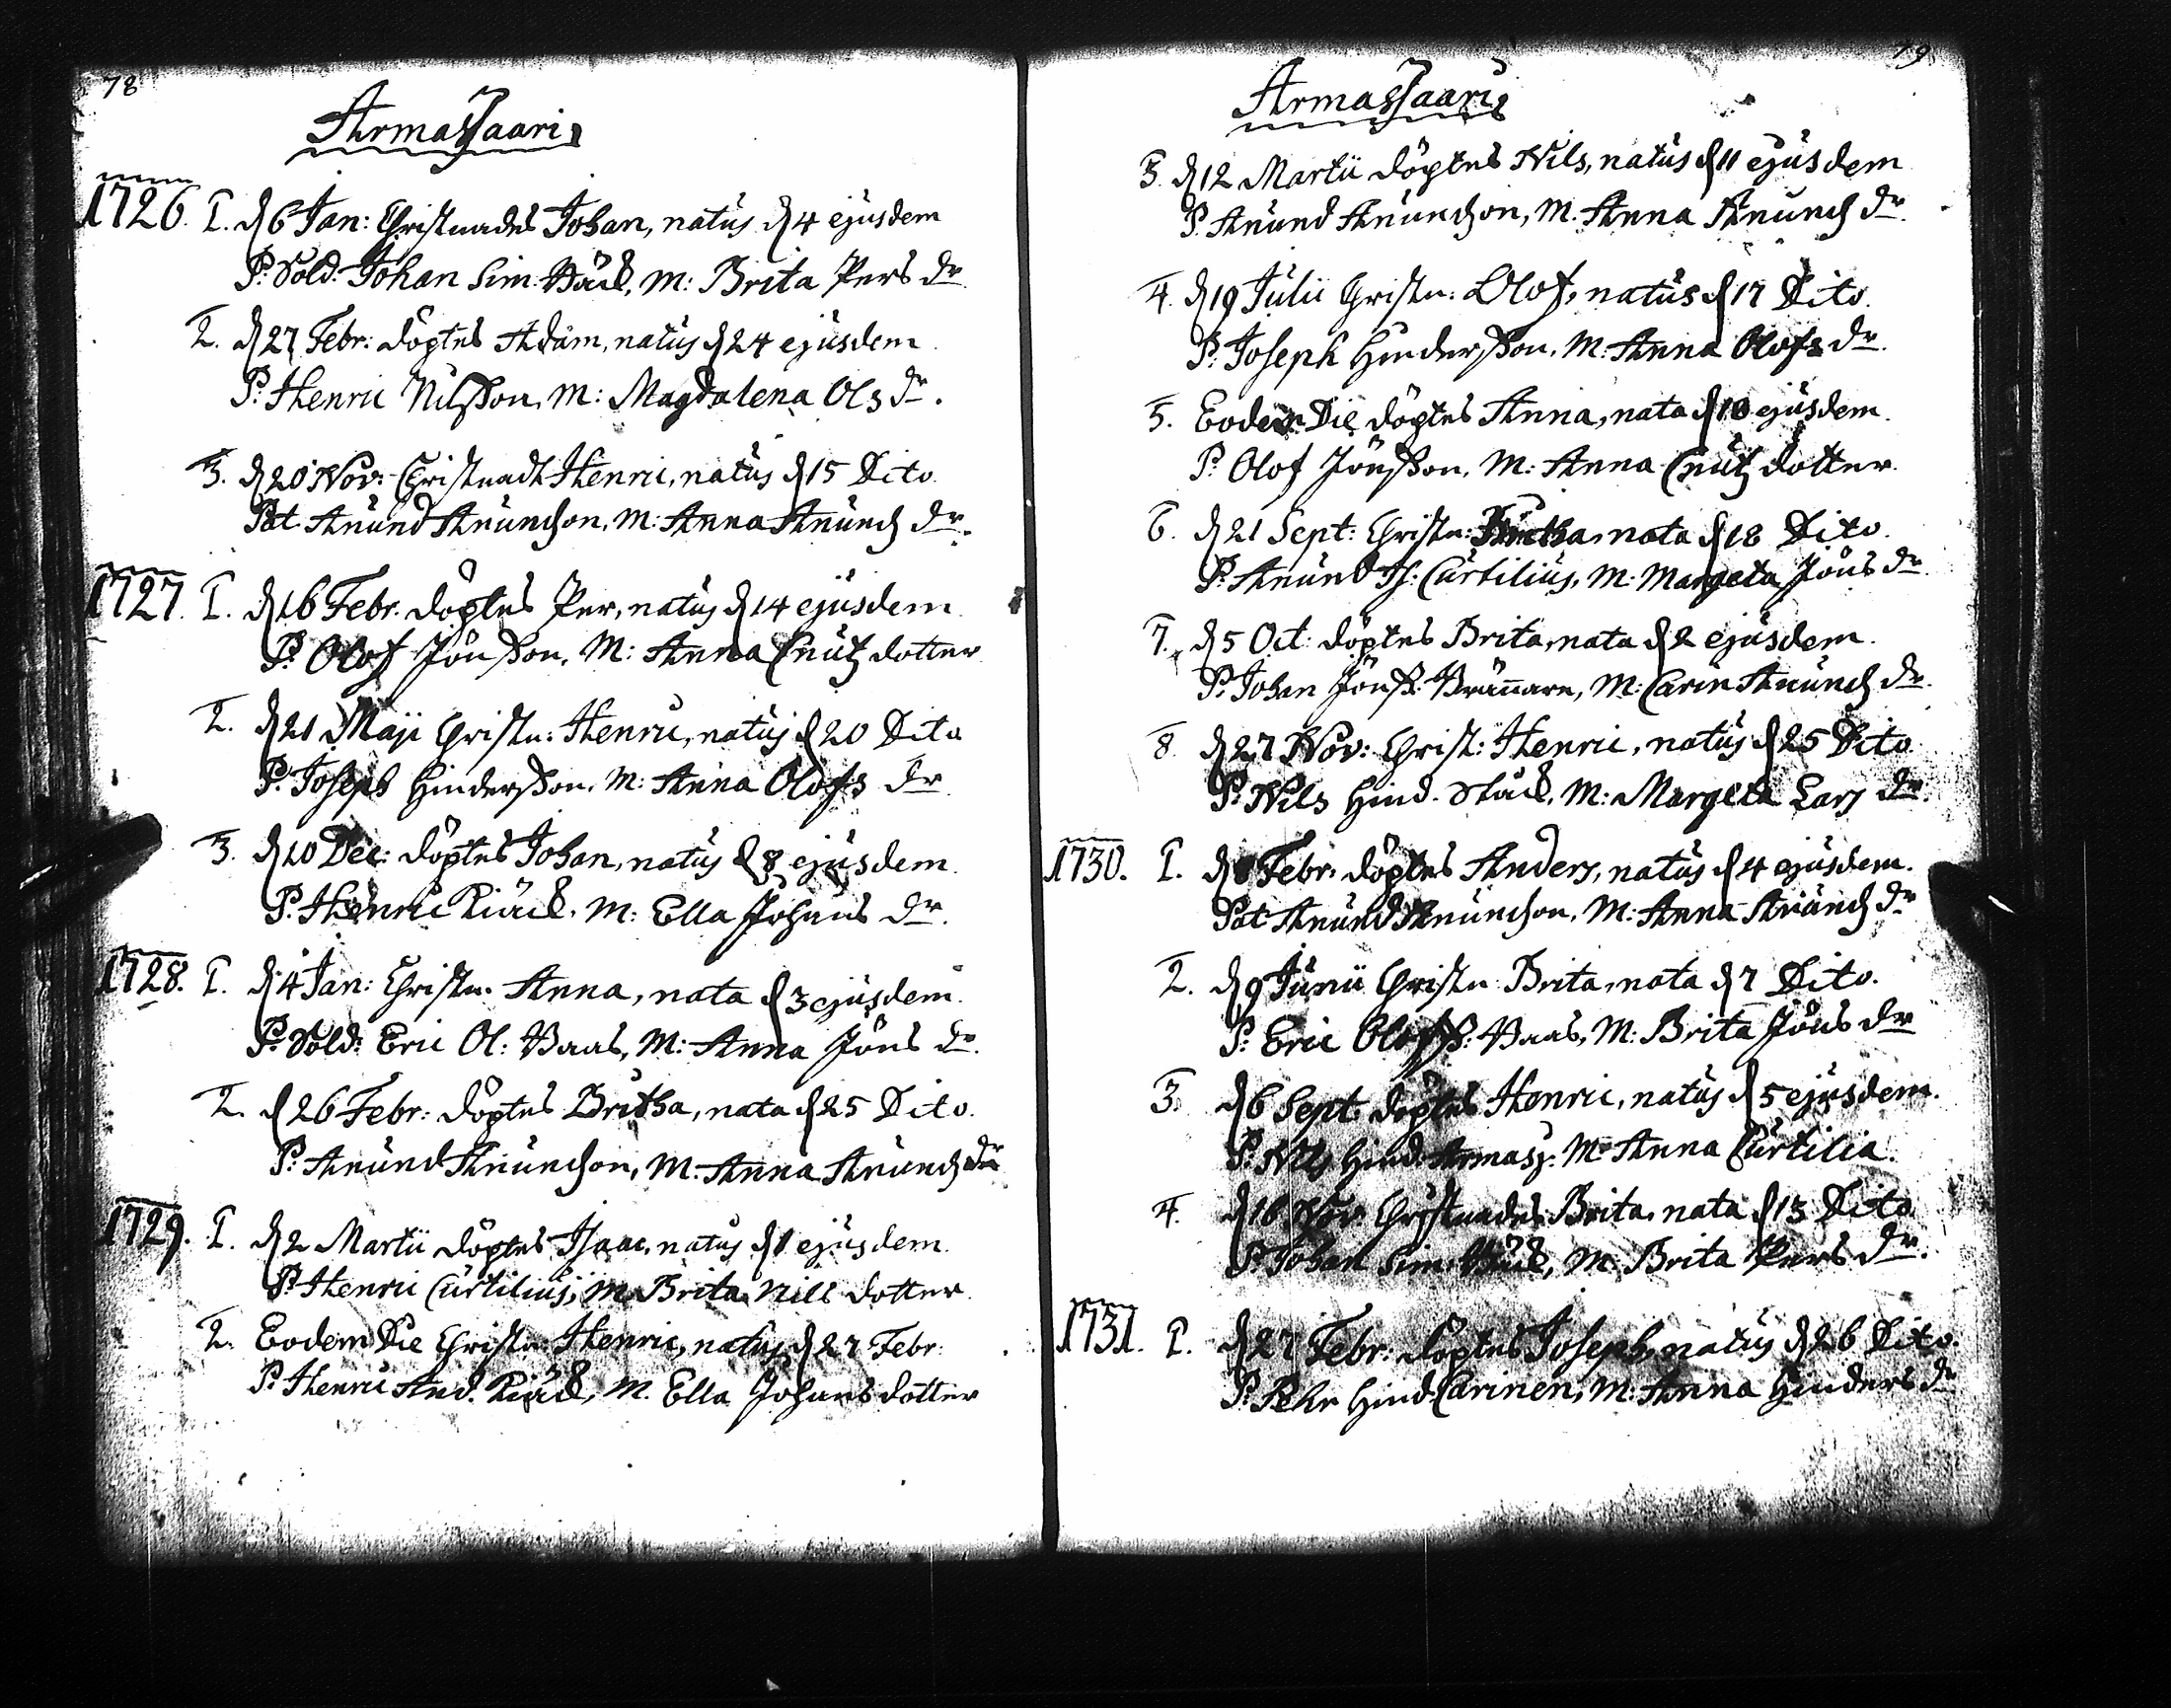 78
Armassaari
1726. 1. d 6 Jan: Christnades Johan, natus d 4 ejusdem
P: Sold: Johan Sim: Bäck, M: Brita Pers dr
2. d 27 Febr: döptes Adam, natus d 24 ejusdem
P: Henric Nilsson, M: Magdalena Ols dr.
3. d 20 Nov: Christnadt Henric, natus d 15 Dito
Pat. Anund Anundson, M: Anna Anunds dr.
1727. 1. d 16 Febr. döptes Per, natus d 14 ejusdem
P: Olof Jönsson, M: Anna Cnutz dotter
2. d 21 Maji Christn: Henric, natus d 20 Dito
P: Joseph Hindersson, M: Anna Olofs dr
3. d 10 Dec: döptes Johan, natus d 8 ejusdem
P: Henric M: Ella Johans dr.
1728. 1. d 4 Jan: Christn. Anna, nata d 3 ejusdem.
P: Sold: Eric Ol: Vaas, M: Anna Jöns dr.
2. d 26 Febr: döptes Britha, nata d 25 Dito.
P: Anund Anundson, M: Anna Anunds dr
1729. 1. d 2 Martii döptes Isaac, natus d 1 ejusdem
P: Henric Curtilius, M. Brita Nils dotter
2. Eodem Die Christn: Henric, natus d 27 Febr:
P: Henric And. M. Ella Johans dotter
79
Armassaari
3. d 12 Martii döptes Nils, natus d 11 ejusdem
P. Anund Anundson, M. Anna Anunds dr.
4. d 19 Julii Christn: Olof, natus d 17 Dito.
P: Joseph Hindersson, M: Anna Olofs dr.
5. Eodem Die döptes Anna, nata d 18 ejusdem.
P: Olof Jönsson, M: Anna Cnutz dotter
6. d 21 Sept: Christn: nata d 18 Dito.
P: Anund Curtilius, M: Margeta Jöns dr.
7. d 5 Oct: döptes Brita, nata d 2 ejusdem.
P: Johan Jönss: Brännare, M: Carin Anunds dr.
8. d 27 Nov: Christ: Henric, natus d 25 Dito
P: Nils Hind. M: Margeta Lars dr.
1730. 1. d 8 Febr: döptes Anders, natus d 4 ejusdem.
Pat: Anund Anundson, M: Anna Anunds dr
2. d 9 Junii Christn Brita, nata d 7 Dito.
P: Eric Olofss: Vaas, M: Brita Jöns dr
3. d 6 Sept: döptes Henric, natus d 5 ejusdem.
P. Nils Hind. Armass: M: Anna Curtilia.
4. d 16 Nov Christnades Brita, nata d 13 Dito
P: Johan Sim: Bäck, M: Brita Pers dr.
1731. 1. d 27 Febr: döptes Joseph, natus d 26 Dito.
P: Pehr Hind. Carinen, M: Anna Hinders dr